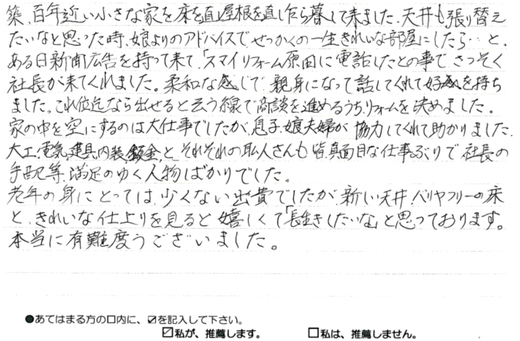 築、百年近い小さな家を床を直し屋根を直し乍ら暮して来ました。天井も張り替え
たいなと思った時、娘よりのアドバイスで、せっかくの一生きれいな部屋にしたら…と、
ある日新聞広告を持って来て「スマイリフォーム原田に電話したとの事で、さっそく
社長が来てくれました。柔和な感じで親身になって話してくれて好感を持ち
ました。これ位迄なら出せると云う線で商談を進めるうちリフォームを決めました。
家の中を空にするのは大仕事でしたが、息子、娘夫婦が協力してくれて助かりました。
大工、電気、建具、内装、鈑金、と、それぞれの職人さんも皆真面目な仕事ぶりで社長の
手配等、満足のゆく人物ばかりでした。
老年の身にとっては少くない出費でしたが、新しい天井、バリヤフリーの床
と、きれいな仕上りを見ると嬉しくて「長生きしたいな」と思っております。
本当に有難度うございました。
●あてはまる方の口内に、☑を記入して下さい。
☑私が、推薦します。 □私は、推薦しません。